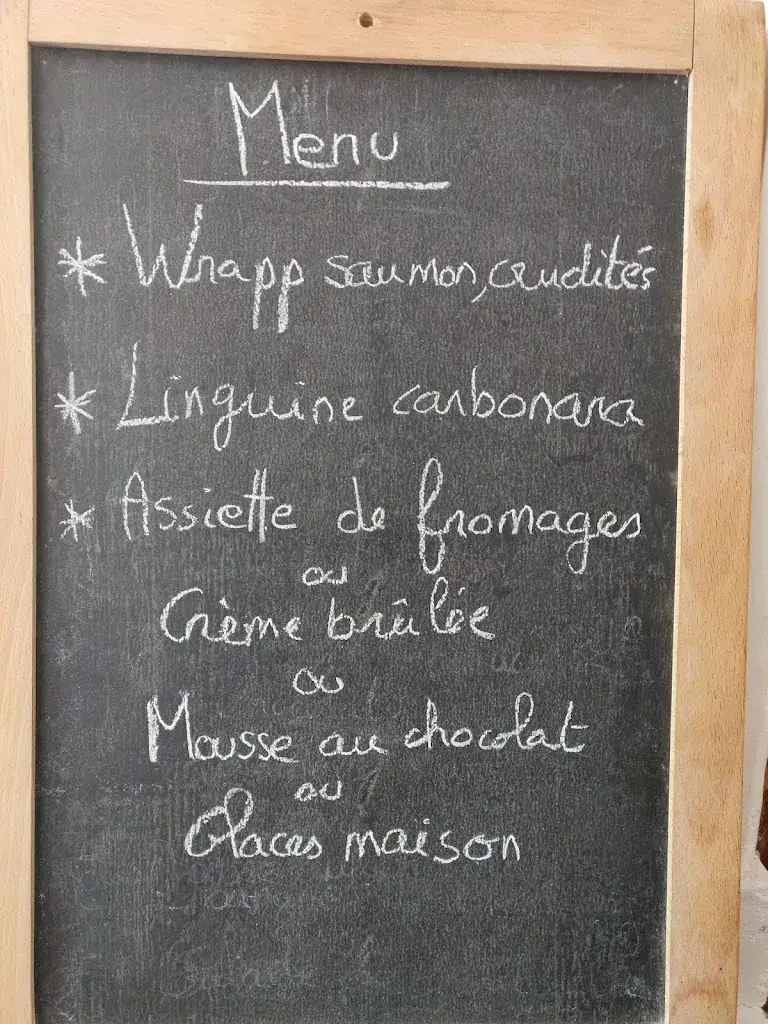 Menu
* Wrapp saumon, crudités
* Linguine carbonara
* Assiette de fromages
ou
Crème brûlée
ou
Mousse au chocolat
ou
Glaces maison